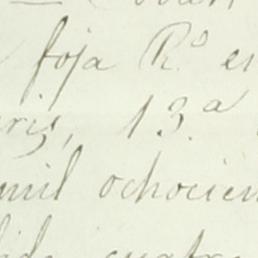 foja R.º en
ris, 13.ª
mil ochocien
cuatro